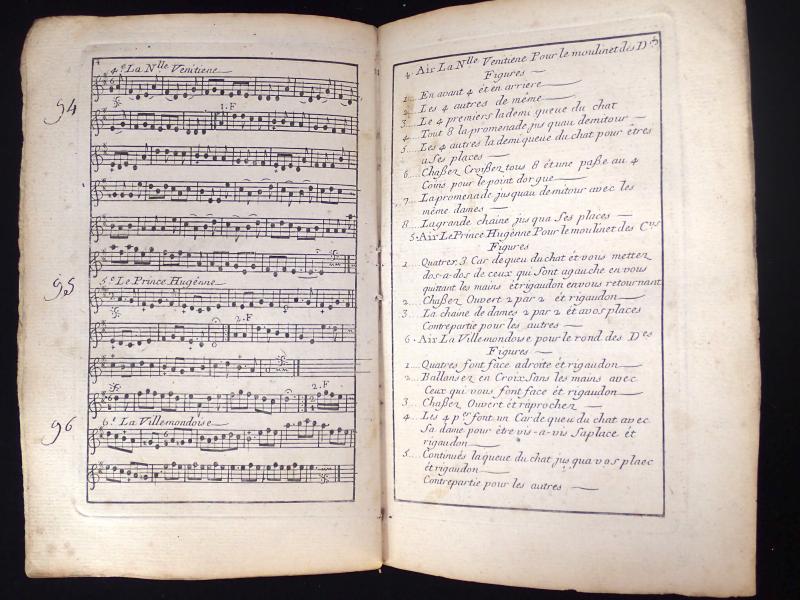 4
4.e La Nlle Venitiene
94
1.F
95
5.e Le Prince Hugênne
2.F
2.F
96
6.e La Villemondoise
5
4. Air La Nlle Venitiene Pour le moulinet des D.s
Figures
1 En avant 4 et en arriere
2 Les 4 autres de même
3 Le 4 premiers la demi queue du chat
4 Tout 8 la promenade jusquau demitour
5 Les 4 autres la demi queue du chat pour êtres
a ses places
6 Chaßez Croißez tous 8 et une paße au 4
Coins pour le point dorgue
7 La promenade jusquau demitour avec les
même dames
8 La grande chaine jusqua ses places
5. Air Le Prince Hugênne Pour le moulinet des Crs
Figures
1 Quatres 3 Car de queu du chat et vous mettez
dos-a-dos de ceux qui sont agauche en vous
quittant les mains et rigaudon en vous retournant
2 Chaßez Ouvert 2 par 2 et rigaudon
3 La chaine de dames 2 par 2 et avos places
Contrepartie pour les autres
6. Air La Villemondoise pour le rond des Des
Figures
1 Quatres font face adroite et rigaudon
2 Ballansez en Croix sans les mains avec
Ceux qui vous font face et rigaudon
3 Chaßez Ouvert et raprochez
4 Les 4 per font un Car de queu du chat avec
Sa dame pour être vis-a-vis saplace et
rigaudon
5 Continués la queue du chat jusqua vos plaec
et rigaudon
Contrepartie pour les autres